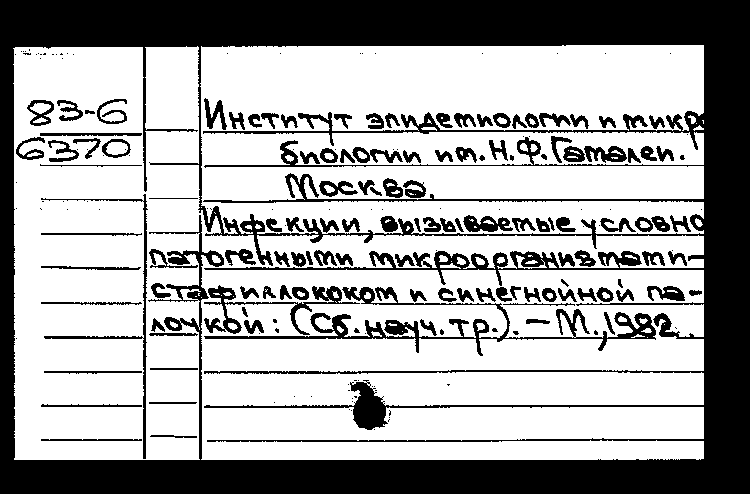 83-6
6370
Институт эпидемиологии и микро
биологии им. Н.Ф. Гамалеи.
Москва.
Инфекции, вызываемые условно
патогенными микроорганизмами-
стафиллококом и синегнойной па-
лочкой: (Сб. науч. тр.). - М., 1982.